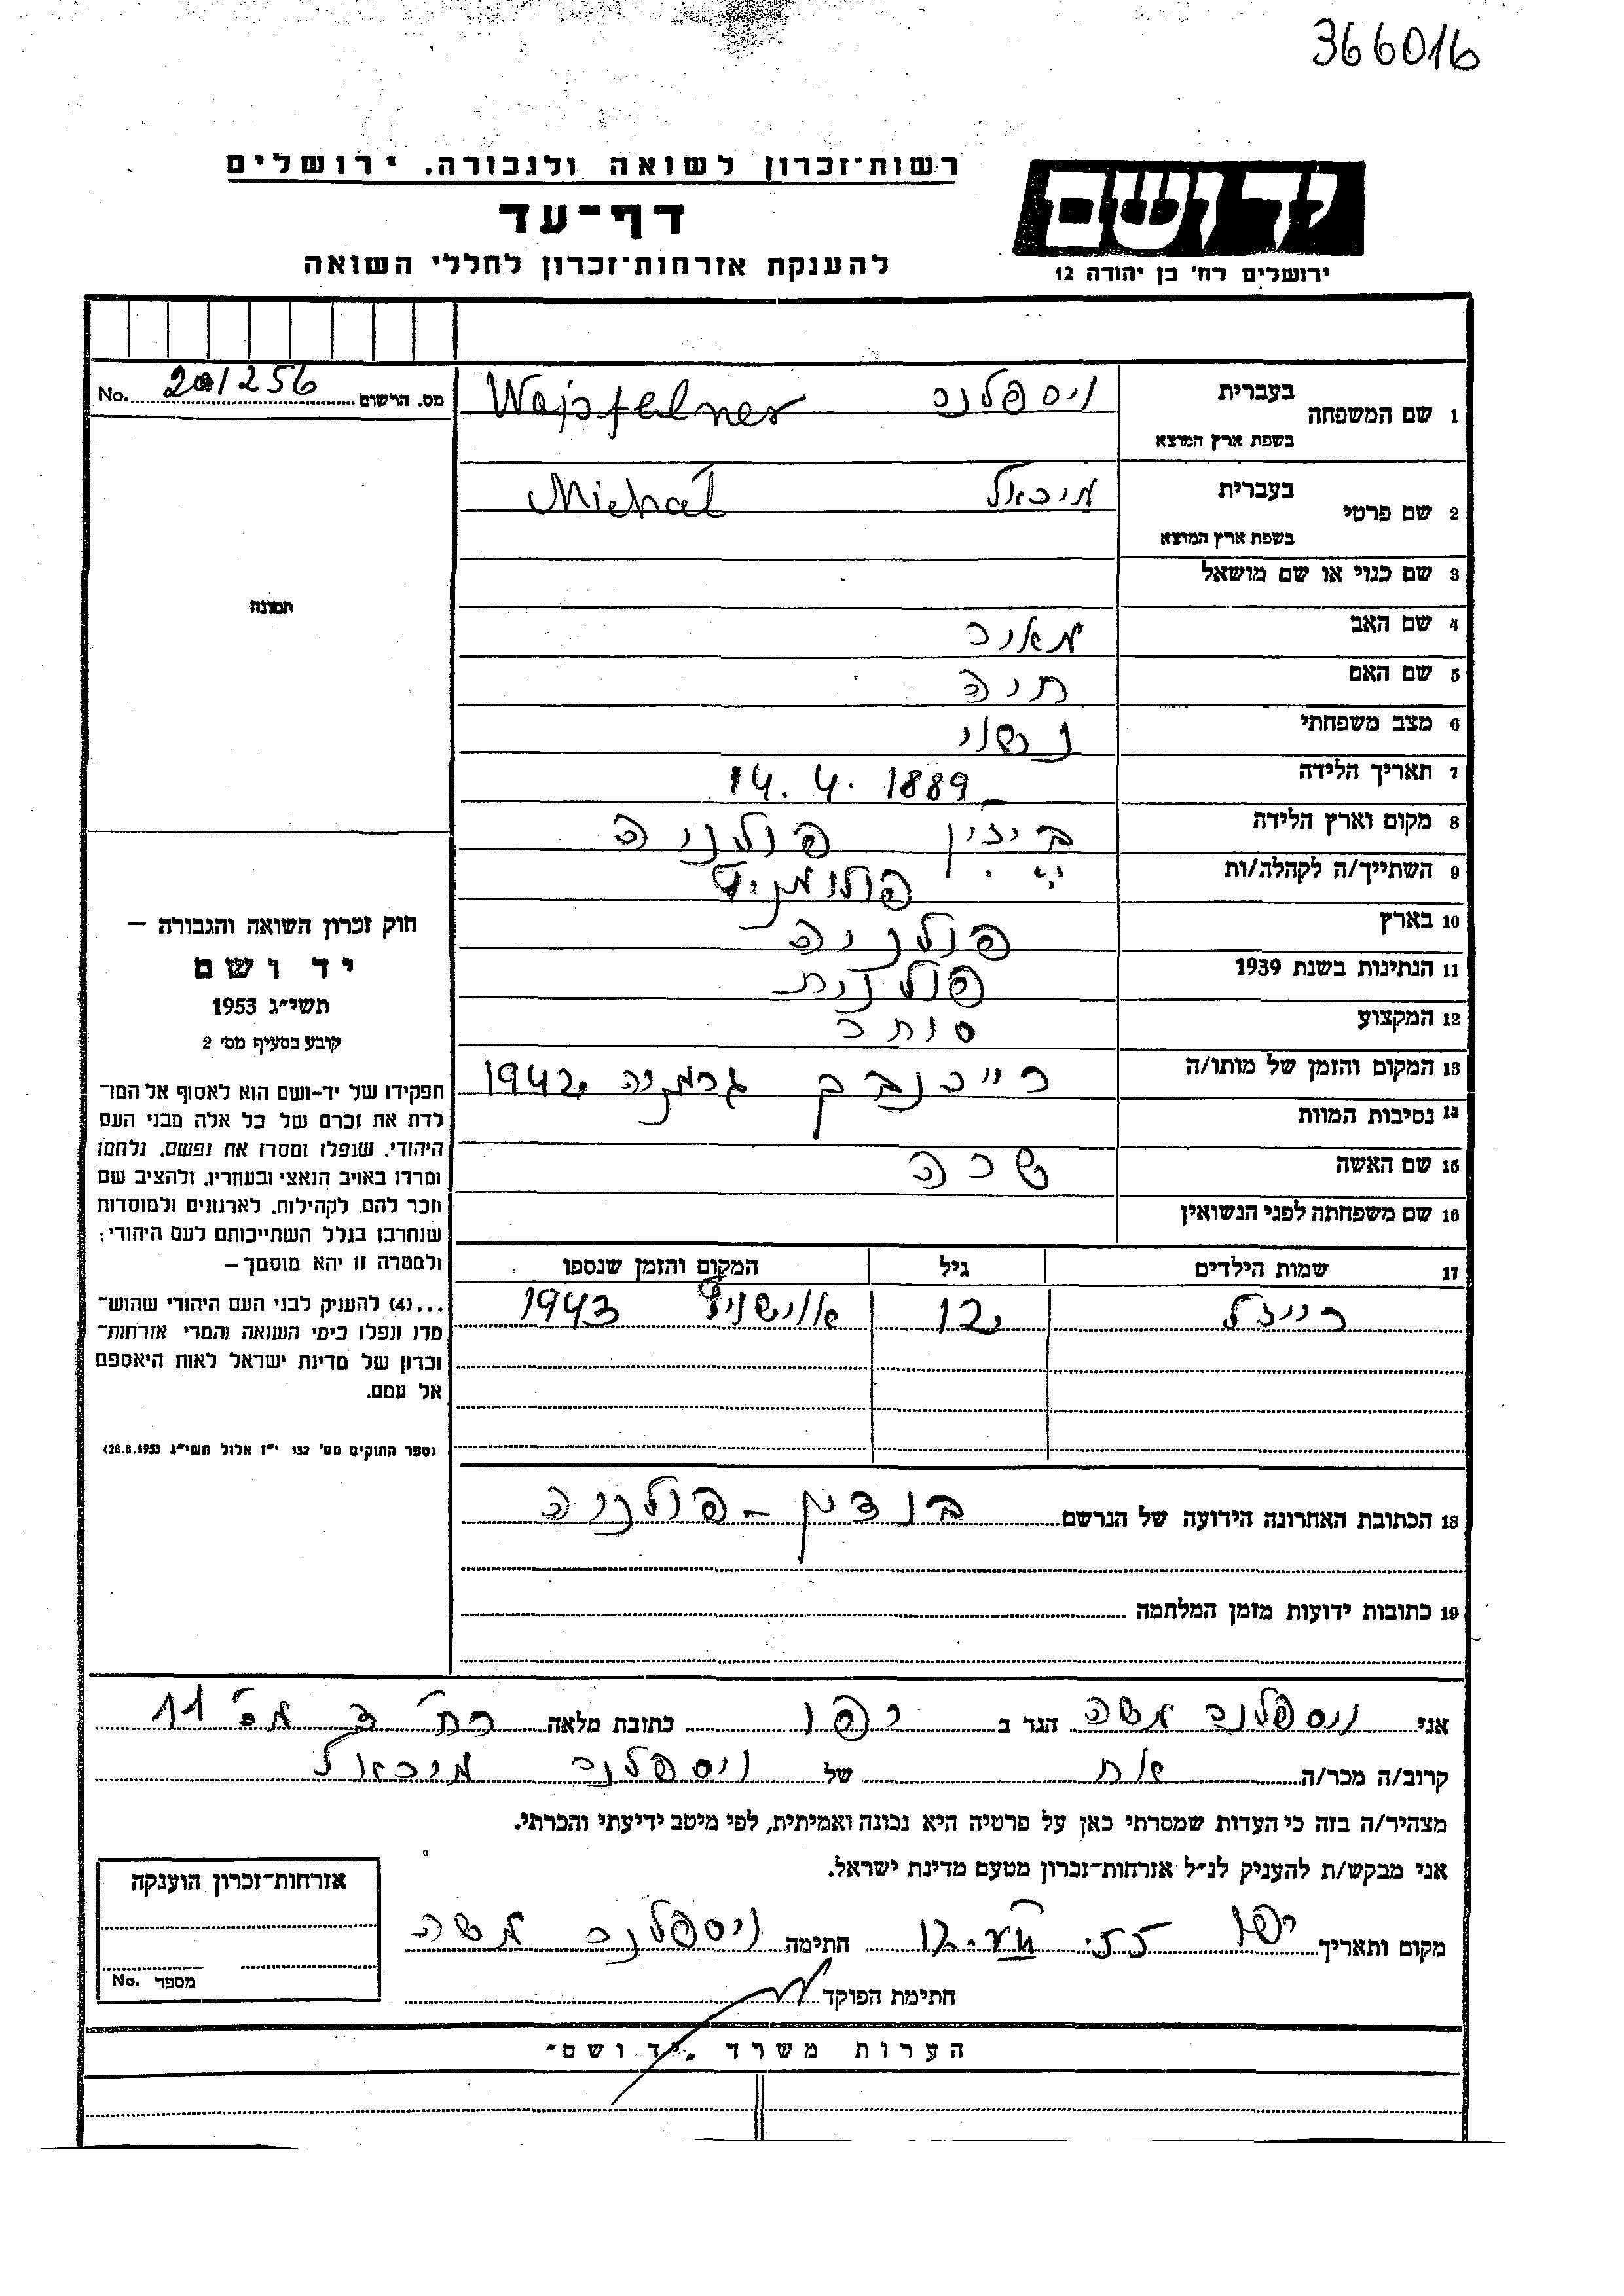 366016
רשות־זכרון לשואה ולגבורה, ירושלים
דף־עד
להענקת אזרחות־זכרון לחללי השואה
יד ושם
ירושלים רח' בן יהודה 12
מס. הרשום No. 201256
1 שם המשפחה בעברית ויספלנר Wajsfelner
בשפת ארץ המוצא
2 שם פרטי בעברית מיכאל Michał
בשפת ארץ המוצא
3 שם כנוי או שם מושאל
4 שם האב מאיר
5 שם האם חיה
6 מצב משפחתי נשוי
7 תאריך הלידה 14. 4. 1889
8 מקום וארץ הלידה פולניה
9 השתייך/ה לקהלה/ות
10 בארץ פולניה
11 הנתינות בשנת 1939 פולנית
12 המקצוע סוחר
13 המקום והזמן של מותו/ה גרמניה 1942
14 נסיבות המוות
15 שם האשה שרה
16 שם משפחתה לפני הנשואין
17 שמות הילדים גיל המקום והזמן שנספו
רייזל 12 אוישויץ 1943
18 הכתובת האחרונה הידועה של הנרשם בנדין - פולניה
19 כתובות ידועות מזמן המלחמה
תמונה
חוק זכרון השואה והגבורה –
יד ושם
תשי״ג 1953
קובע בסעיף מס' 2
תפקידו של יד-ושם הוא לאסוף אל המו־
לדת את זכרם של כל אלה מבני העם
היהודי, שנפלו ומסרו את נפשם, נלחמו
ומרדו באויב הנאצי ובעוזריו, ולהציב שם
וזכר להם, לקהילות, לארגונים ולמוסדות
שנחרבו בגלל השתייכותם לעם היהודי;
ולמטרה זו יהא מוסמך –
...(4) להעניק לבני העם היהודי שהוש־
מדו ונפלו בימי השואה והמרי אזרחות־
זכרון של מדינת ישראל לאות היאספם
אל עמם.
(ספר החוקים מס' 132 י״ז אלול תשי״ג 28.8.1953)
אני ויספלנר משה הגר ב יפו כתובת מלאה רח' ד מס' 11
קרוב/ה מכר/ה אח של ויספלנר מיכאל
מצהיר/ה בזה כי העדות שמסרתי כאן על פרטיה היא נכונה ואמיתית, לפי מיטב ידיעתי והכרתי.
אני מבקש/ת להעניק לנ״ל אזרחות־זכרון מטעם מדינת ישראל.
מקום ותאריך יפו חתימה ויספלנר משה
חתימת הפוקד
אזרחות־זכרון הוענקה
מספר No.
הערות משרד „יד ושם״